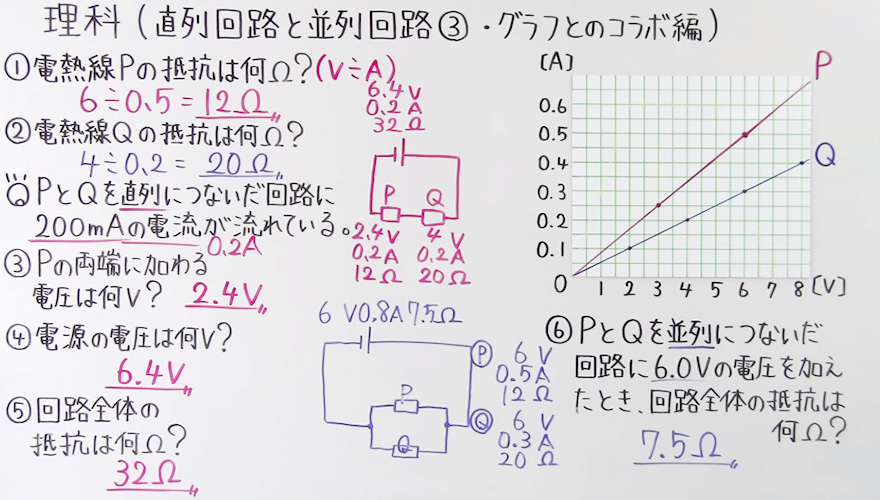 理科(直列回路と並列回路③・グラフとのコラボ編)
①電熱線Pの抵抗は何Ω?(V÷A)
6÷0.5=12Ω
②電熱線Qの抵抗は何Ω?
4÷0.2=20Ω
PとQを直列につないだ回路に
200mAの電流が流れている。
0.2A
③Pの両端に加わる
電圧は何V? 2.4V
④電源の電圧は何V?
6.4V
⑤回路全体の
抵抗は何Ω?
32Ω
6.4V
0.2A
32Ω
P Q
2.4V 4V
0.2A 0.2A
12Ω 20Ω
6V 0.8A 7.5Ω
P
Q
Ⓟ 6V
0.5A
12Ω
Ⓠ 6V
0.3A
20Ω
[A]
P
Q
0.6
0.5
0.4
0.3
0.2
0.1
0 1 2 3 4 5 6 7 8 [V]
⑥PとQを並列につないだ
回路に6.0Vの電圧を加え
たとき、回路全体の抵抗は
何Ω?
7.5Ω